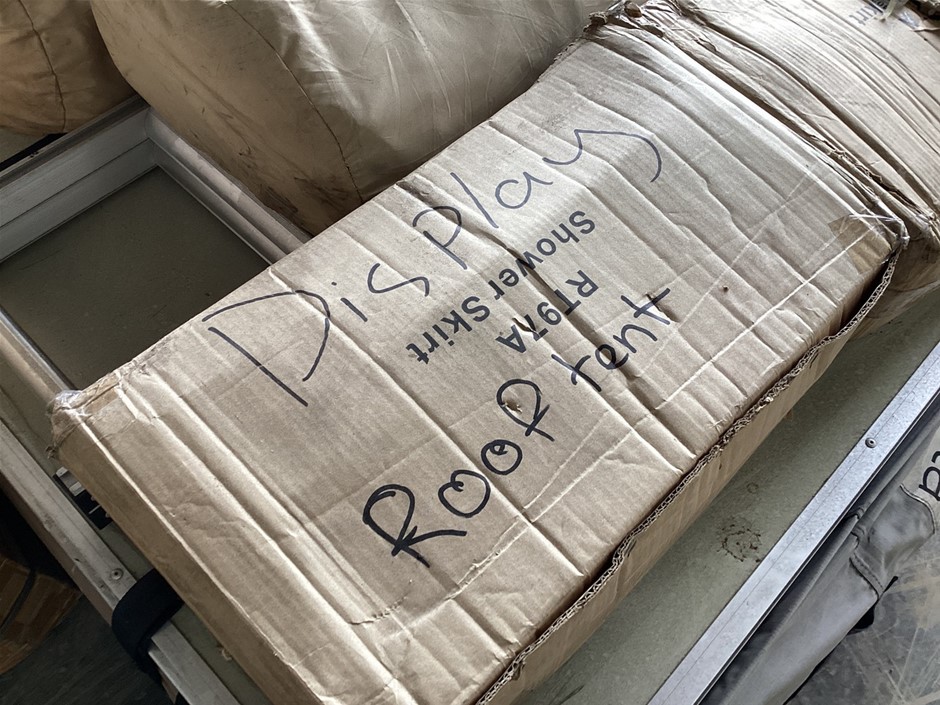 Display
RT97A
Shower Skirt
Roof